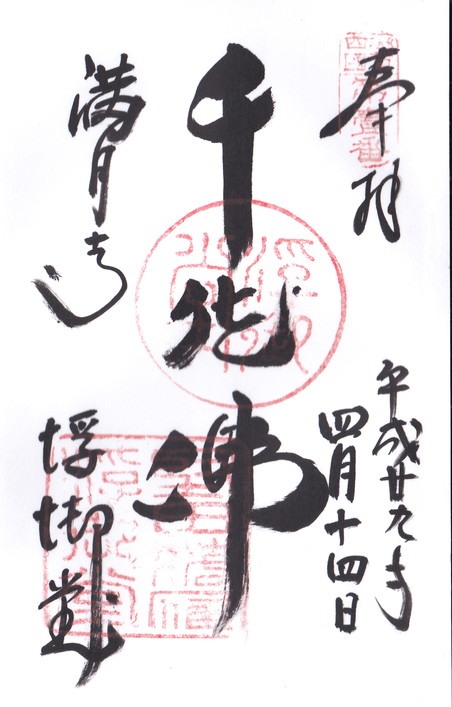 奉拝
平成廿九年
四月十四日
千体佛
満月寺
浮御堂